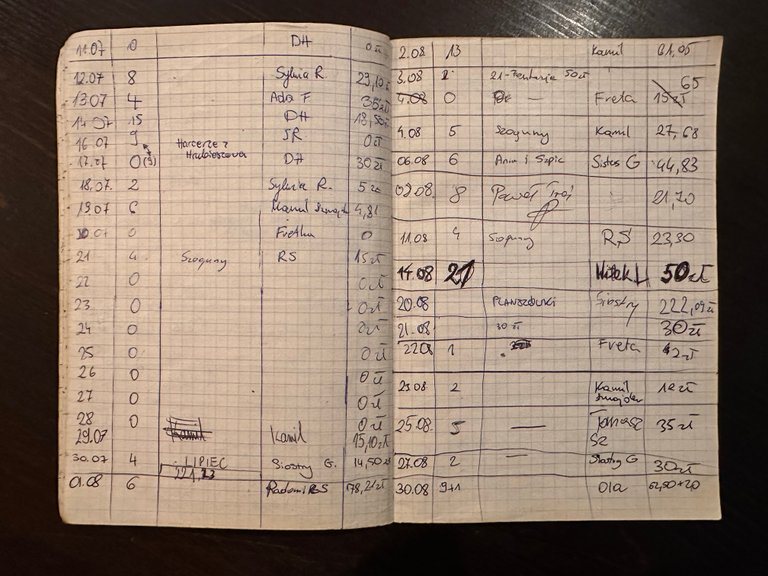 11.07 0 DH 0 zł
12.07 8 Sylwia R. 29,10 zł
13.07 4 Ada F. 35 zł
14.07 15 DH 18,50 zł
16.07 9 Harcerze z Hrubieszowa SR 0 zł
17.07 0(9) DH 30 zł
18.07 2 Sylwia R. 5 zł
19.07 6 Kamil 4,81
20.07 0 Fretka 0
21 4 Szoguny RS 15 zł
22 0 0 zł
23 0 0 zł
24 0 0 zł
25 0 0 zł
26 0 0 zł
27 0 0 zł
28 0 0 zł
29.07 Kamil 15,10 zł
30.07 4 LIPIEC Siostry G. 14,50 zł
01.08 6 RS 178,21 zł
2.08 13 Kamil 61,05
3.08 50 zł 65
4.08 0 — Freta 15 zł
4.08 5 Szoguny Kamil 27,68
06.08 6 Siostry G 44,83
8 Paweł 21,70
11.08 4 Szoguny R,S 23,30
14.08 21 Witek Ł 50 zł
20.08 PLANSZÓWKI Siostry 222,09 zł
21.08 30 zł 30 zł
22.08 1 Freta 42 zł
23.08 2 Kamil
25.08 5 — Tomasz Sz 35 zł
27.08 2 — Siostry G 30 zł
30.08 9+1 Ola